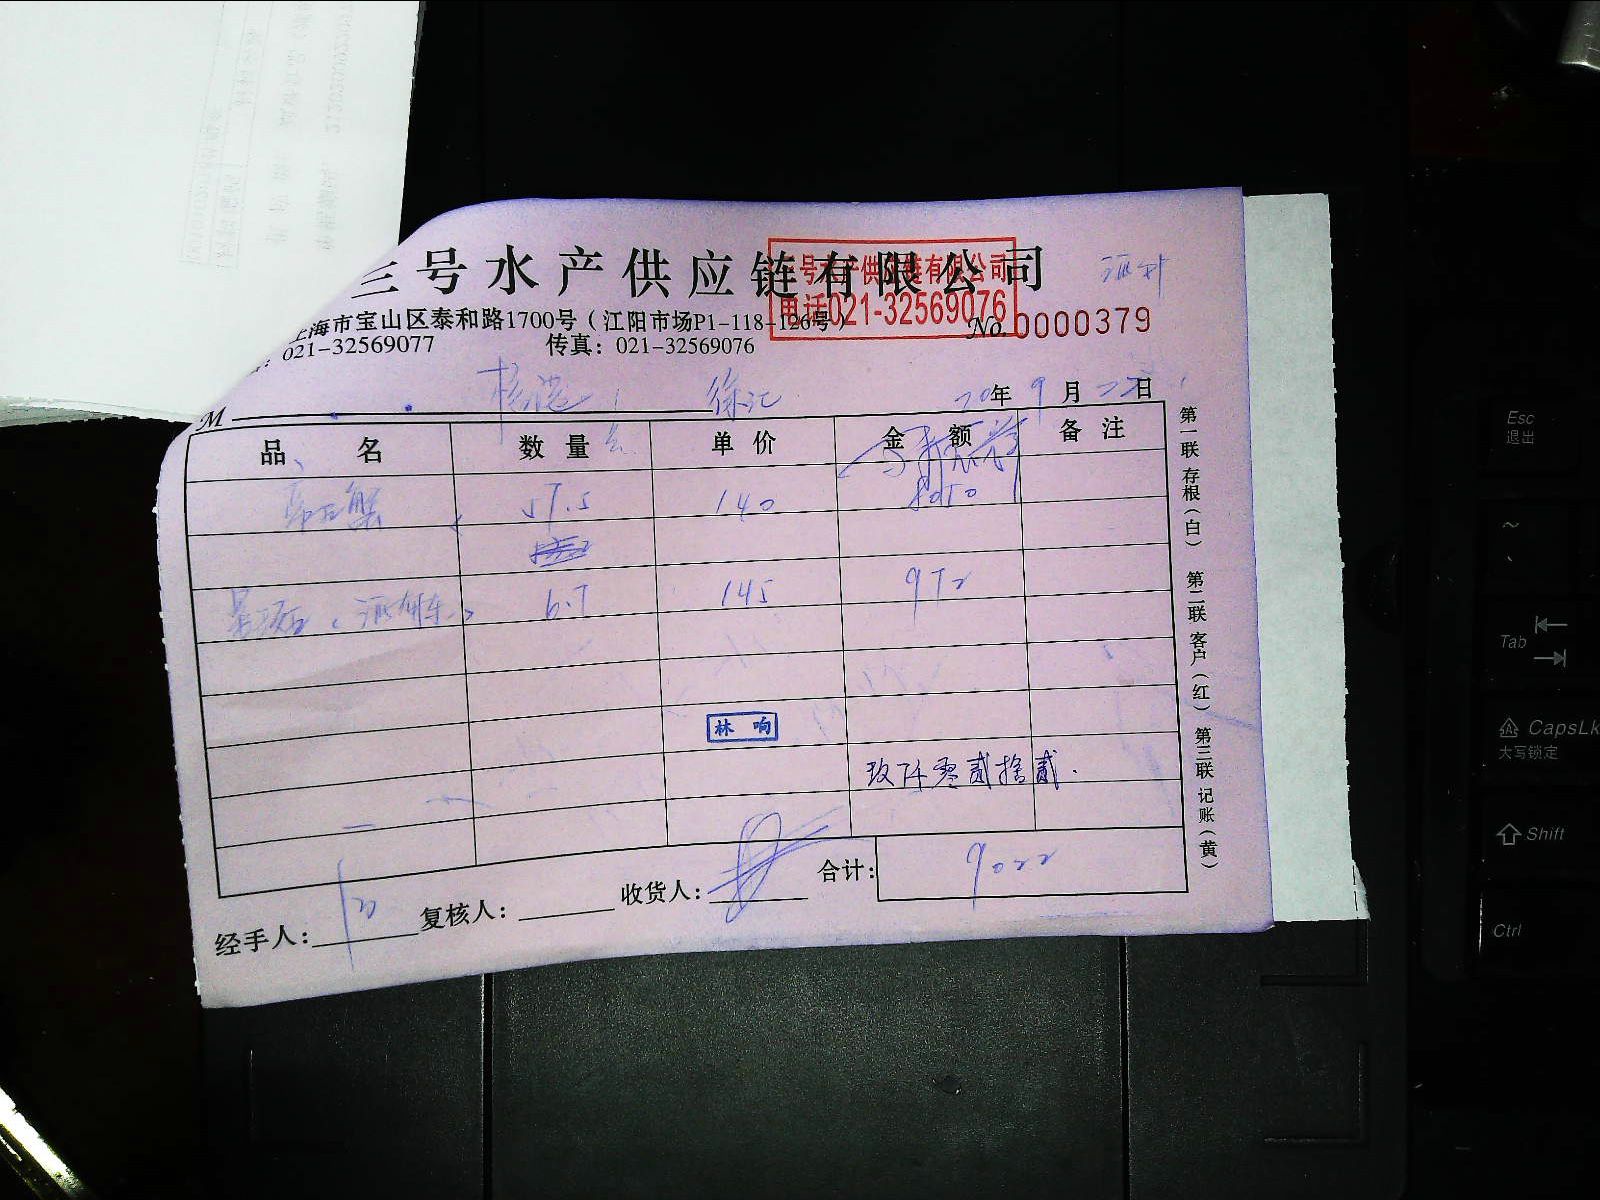 三号水产供应链有限公司
三号水产供应链有限公司
电话021-32569076
上海市宝山区泰和路1700号（江阳市场P1-118-126号）
No. 0000379
：021-32569077 传真：021-32569076
M 徐汇 20年9月22日
品名 数量 单价 金额 备注
蟹 57.5 140 8050
6.7 145 972
林响
玖仟零贰拾贰.
合计： 9022
经手人： 复核人： 收货人：
第一联 存根（白） 第二联 客户（红） 第三联 记账（黄）
Esc
退出
~
Tab
CapsLk
大写锁定
Shift
Ctrl